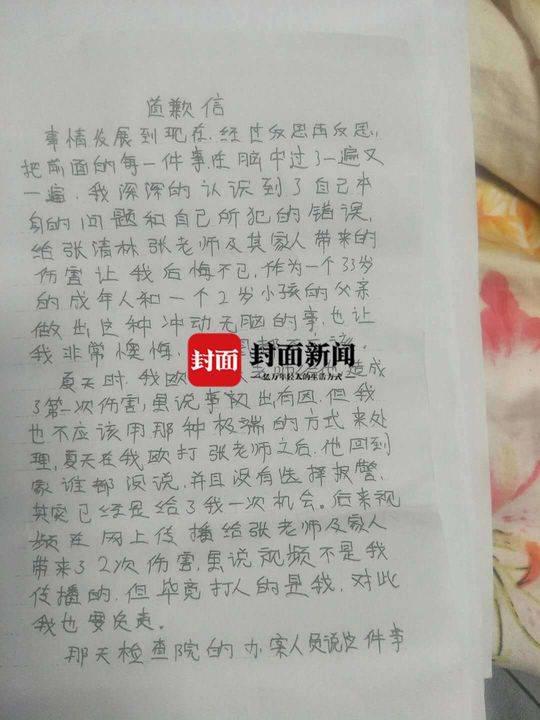 道歉信
事情发展到现在，经过反思再反思，
把前面的每一件事在脑中过了一遍又
一遍，我深深的认识到了自己本
身的问题和自己所犯的错误，
给张清林张老师及其家人带来的
伤害让我后悔不已，作为一个33岁
的成年人和一个2岁小孩的父亲
做出这种冲动无脑的事，也让
我非常懊悔，
封面 封面新闻
亿万年轻人的生活方式
夏天时，我欧 造成
了第一次伤害，虽说事初出有因，但我
也不应该用那种极端的方式来处
理，夏天在我欧打张老师之后，他回到
家谁都没说，并且没有选择报警，
其实已经是给了我一次机会。后来视
频在网上传播给张老师及家人
带来了2次伤害，虽说视频不是我
传播的，但毕竟打人的是我，对此
我也要负责。
那天检查院的办案人员说这件事